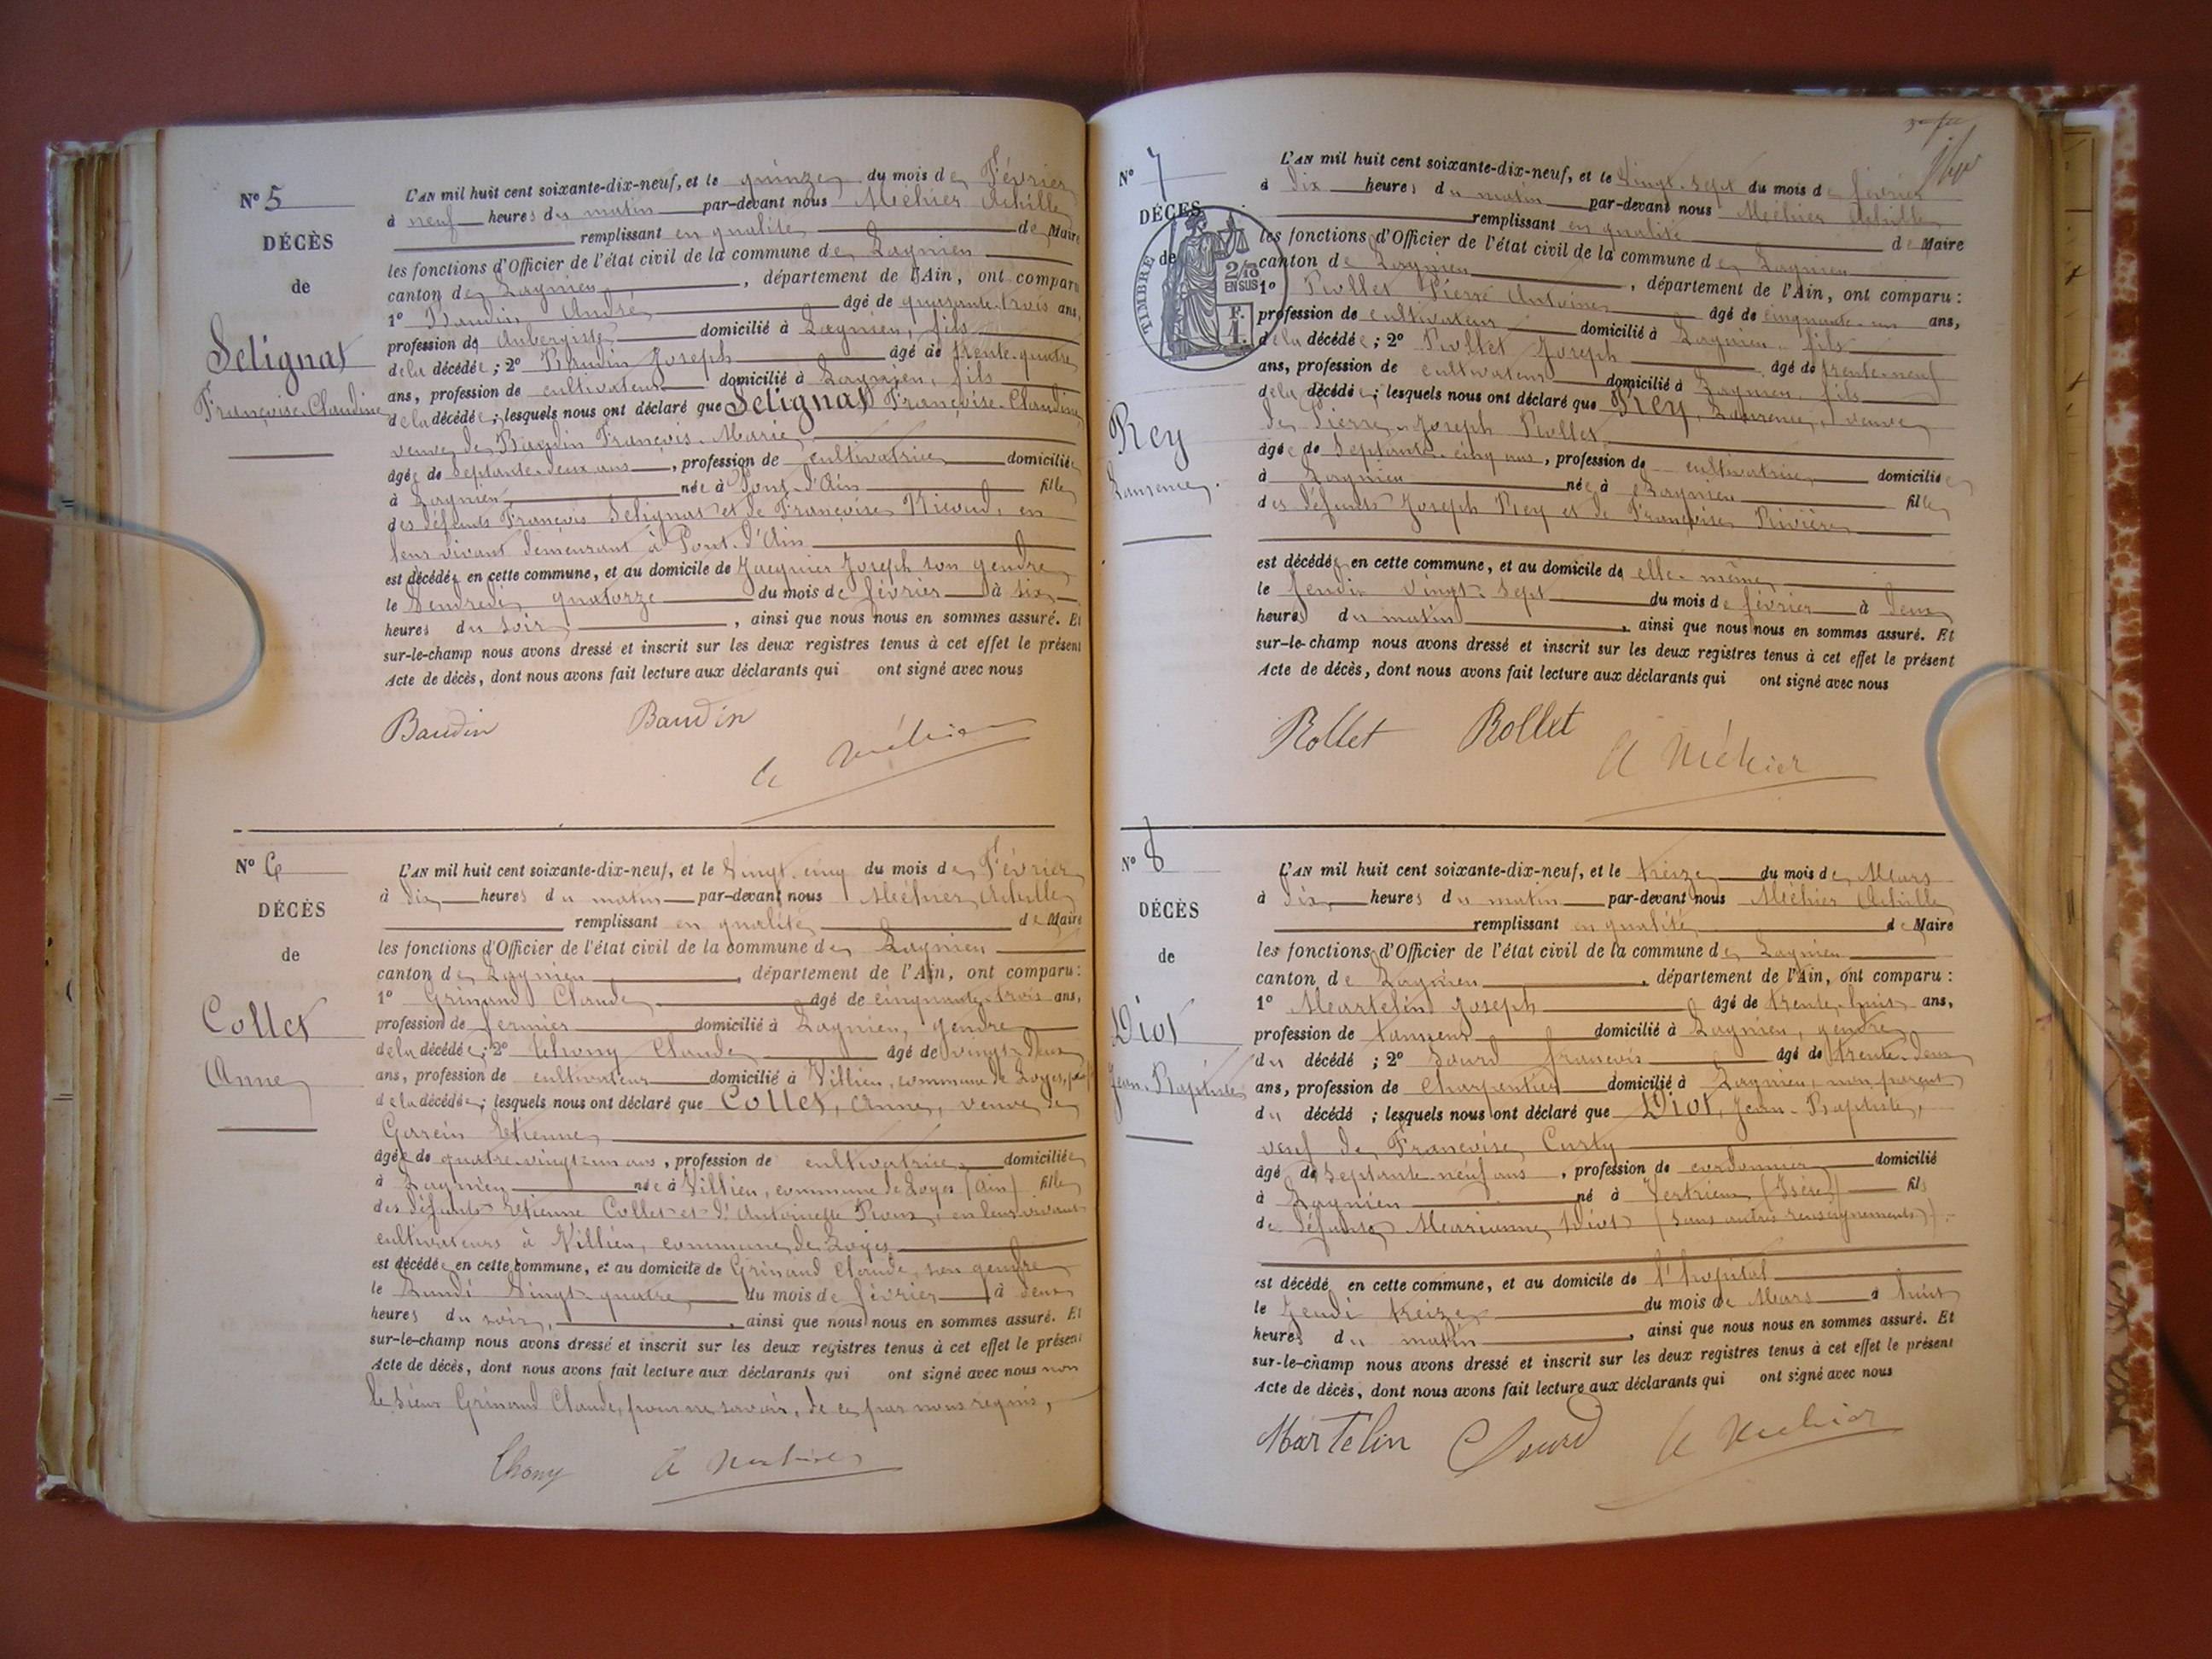 N° 5
DÉCÈS
de
Selignat
Françoise-Claudine
L'AN mil huit cent soixante-dix-neuf, et le quinze du mois de Février
à neuf heures du matin par-devant nous Méhier Achille
remplissant en qualité de Maire
les fonctions d'Officier de l'état civil de la commune de Lagnieu
canton de Lagnieu, département de l'Ain, ont comparu
1° Baudin André âgé de quarante-trois ans,
profession de Aubergiste domicilié à Lagnieu, fils
de la décédée ; 2° Baudin Joseph âgé de trente-quatre
ans, profession de cultivateur domicilié à Lagnieu, fils
de la décédée ; lesquels nous ont déclaré que Selignat Françoise-Claudine
veuve de Baudin François-Marie
âgée de septante-deux ans, profession de cultivatrice domiciliée
à Lagnieu née à Pont-d'Ain fille
des défunts François Selignat et de Françoise en
leur vivant demeurant à Pont-d'Ain
est décédée en cette commune, et au domicile de Jacquier Joseph son gendre
le Vendredi quatorze du mois de février à six
heures du soir, ainsi que nous nous en sommes assuré. Et
sur-le-champ nous avons dressé et inscrit sur les deux registres tenus à cet effet le présent
Acte de décès, dont nous avons fait lecture aux déclarants qui ont signé avec nous
Baudin Baudin
A Méhier
N° 6
DÉCÈS
de
Collet
Anne
L'AN mil huit cent soixante-dix-neuf, et le Vingt-cinq du mois de Février
à dix heures du matin par-devant nous Méhier Achille
remplissant en qualité de Maire
les fonctions d'Officier de l'état civil de la commune de Lagnieu
canton de Lagnieu, département de l'Ain, ont comparu :
1° Grinand Claude âgé de cinquante-trois ans,
profession de fermier domicilié à Lagnieu, gendre
de la décédée ; 2° Claude âgé de vingt-deux
ans, profession de cultivateur domicilié à Villieu, commune de Loyes,
de la décédée ; lesquels nous ont déclaré que Collet, Anne, veuve de
Garcin Etienne
âgée de quatre-vingt-un ans, profession de cultivatrice domiciliée
à Lagnieu née à Villieu, commune de Loyes (Ain) fille
des défunts Etienne Collet et d'Antoinette Proux, en leur vivant
cultivateurs à Villieu, commune de Loyes
est décédée en cette commune, et au domicile de Grinand Claude, son gendre
le Lundi Vingt-quatre du mois de février à deux
heures du soir, ainsi que nous nous en sommes assuré. Et
sur-le-champ nous avons dressé et inscrit sur les deux registres tenus à cet effet le présent
Acte de décès, dont nous avons fait lecture aux déclarants qui ont signé avec nous non
le sieur Grinand Claude, pour ne savoir, de ce par nous requis,
Chony A Méhier
N° 7
DÉCÈS
de
TIMBRE
2/10
EN SUS
F.
1.
Rey
Laurence
L'AN mil huit cent soixante-dix-neuf, et le Vingt-sept du mois de février
à Dix heures du matin par-devant nous Méhier Achille
remplissant en qualité de Maire
les fonctions d'Officier de l'état civil de la commune de Lagnieu
canton de Lagnieu, département de l'Ain, ont comparu :
1° Rollet Pierre Antoine âgé de cinquante-un ans,
profession de cultivateur domicilié à Lagnieu, fils
de la décédée ; 2° Rollet Joseph âgé de trente-neuf
ans, profession de cultivateur domicilié à Lagnieu, fils
de la décédée ; lesquels nous ont déclaré que Rey, Laurence, veuve
de Pierre-Joseph Rollet
âgée de Septante-cinq ans, profession de cultivatrice domiciliée
à Lagnieu née à Lagnieu fille
des défunts Joseph Rey et de Françoise Rivière
est décédée en cette commune, et au domicile de elle-même
le Jeudi Vingt-sept du mois de février à deux
heures du matin, ainsi que nous nous en sommes assuré. Et
sur-le-champ nous avons dressé et inscrit sur les deux registres tenus à cet effet le présent
Acte de décès, dont nous avons fait lecture aux déclarants qui ont signé avec nous
Rollet Rollet A Méhier
N° 8
DÉCÈS
de
Diot
Jean-Baptiste
L'AN mil huit cent soixante-dix-neuf, et le treize du mois de Mars
à Dix heures du matin par-devant nous Méhier Achille
remplissant en qualité de Maire
les fonctions d'Officier de l'état civil de la commune de Lagnieu
canton de Lagnieu, département de l'Ain, ont comparu :
1° Martelin Joseph âgé de trente-huit ans,
profession de tanneur domicilié à Lagnieu, gendre
du décédé ; 2° Sourd françois âgé de trente-deux
ans, profession de Charpentier domicilié à Lagnieu, non parent
du décédé ; lesquels nous ont déclaré que Diot, Jean-Baptiste,
veuf de Françoise Curty
âgé de Septante-neuf ans, profession de cordonnier domicilié
à Lagnieu né à Vertrieu (Isère) fils
de défunte Marianne Diot (sans autres renseignements)
est décédé en cette commune, et au domicile de l'hôpital
le Jeudi treize du mois de Mars à huit
heures du matin, ainsi que nous nous en sommes assuré. Et
sur-le-champ nous avons dressé et inscrit sur les deux registres tenus à cet effet le présent
Acte de décès, dont nous avons fait lecture aux déclarants qui ont signé avec nous
Martelin Sourd A Méhier